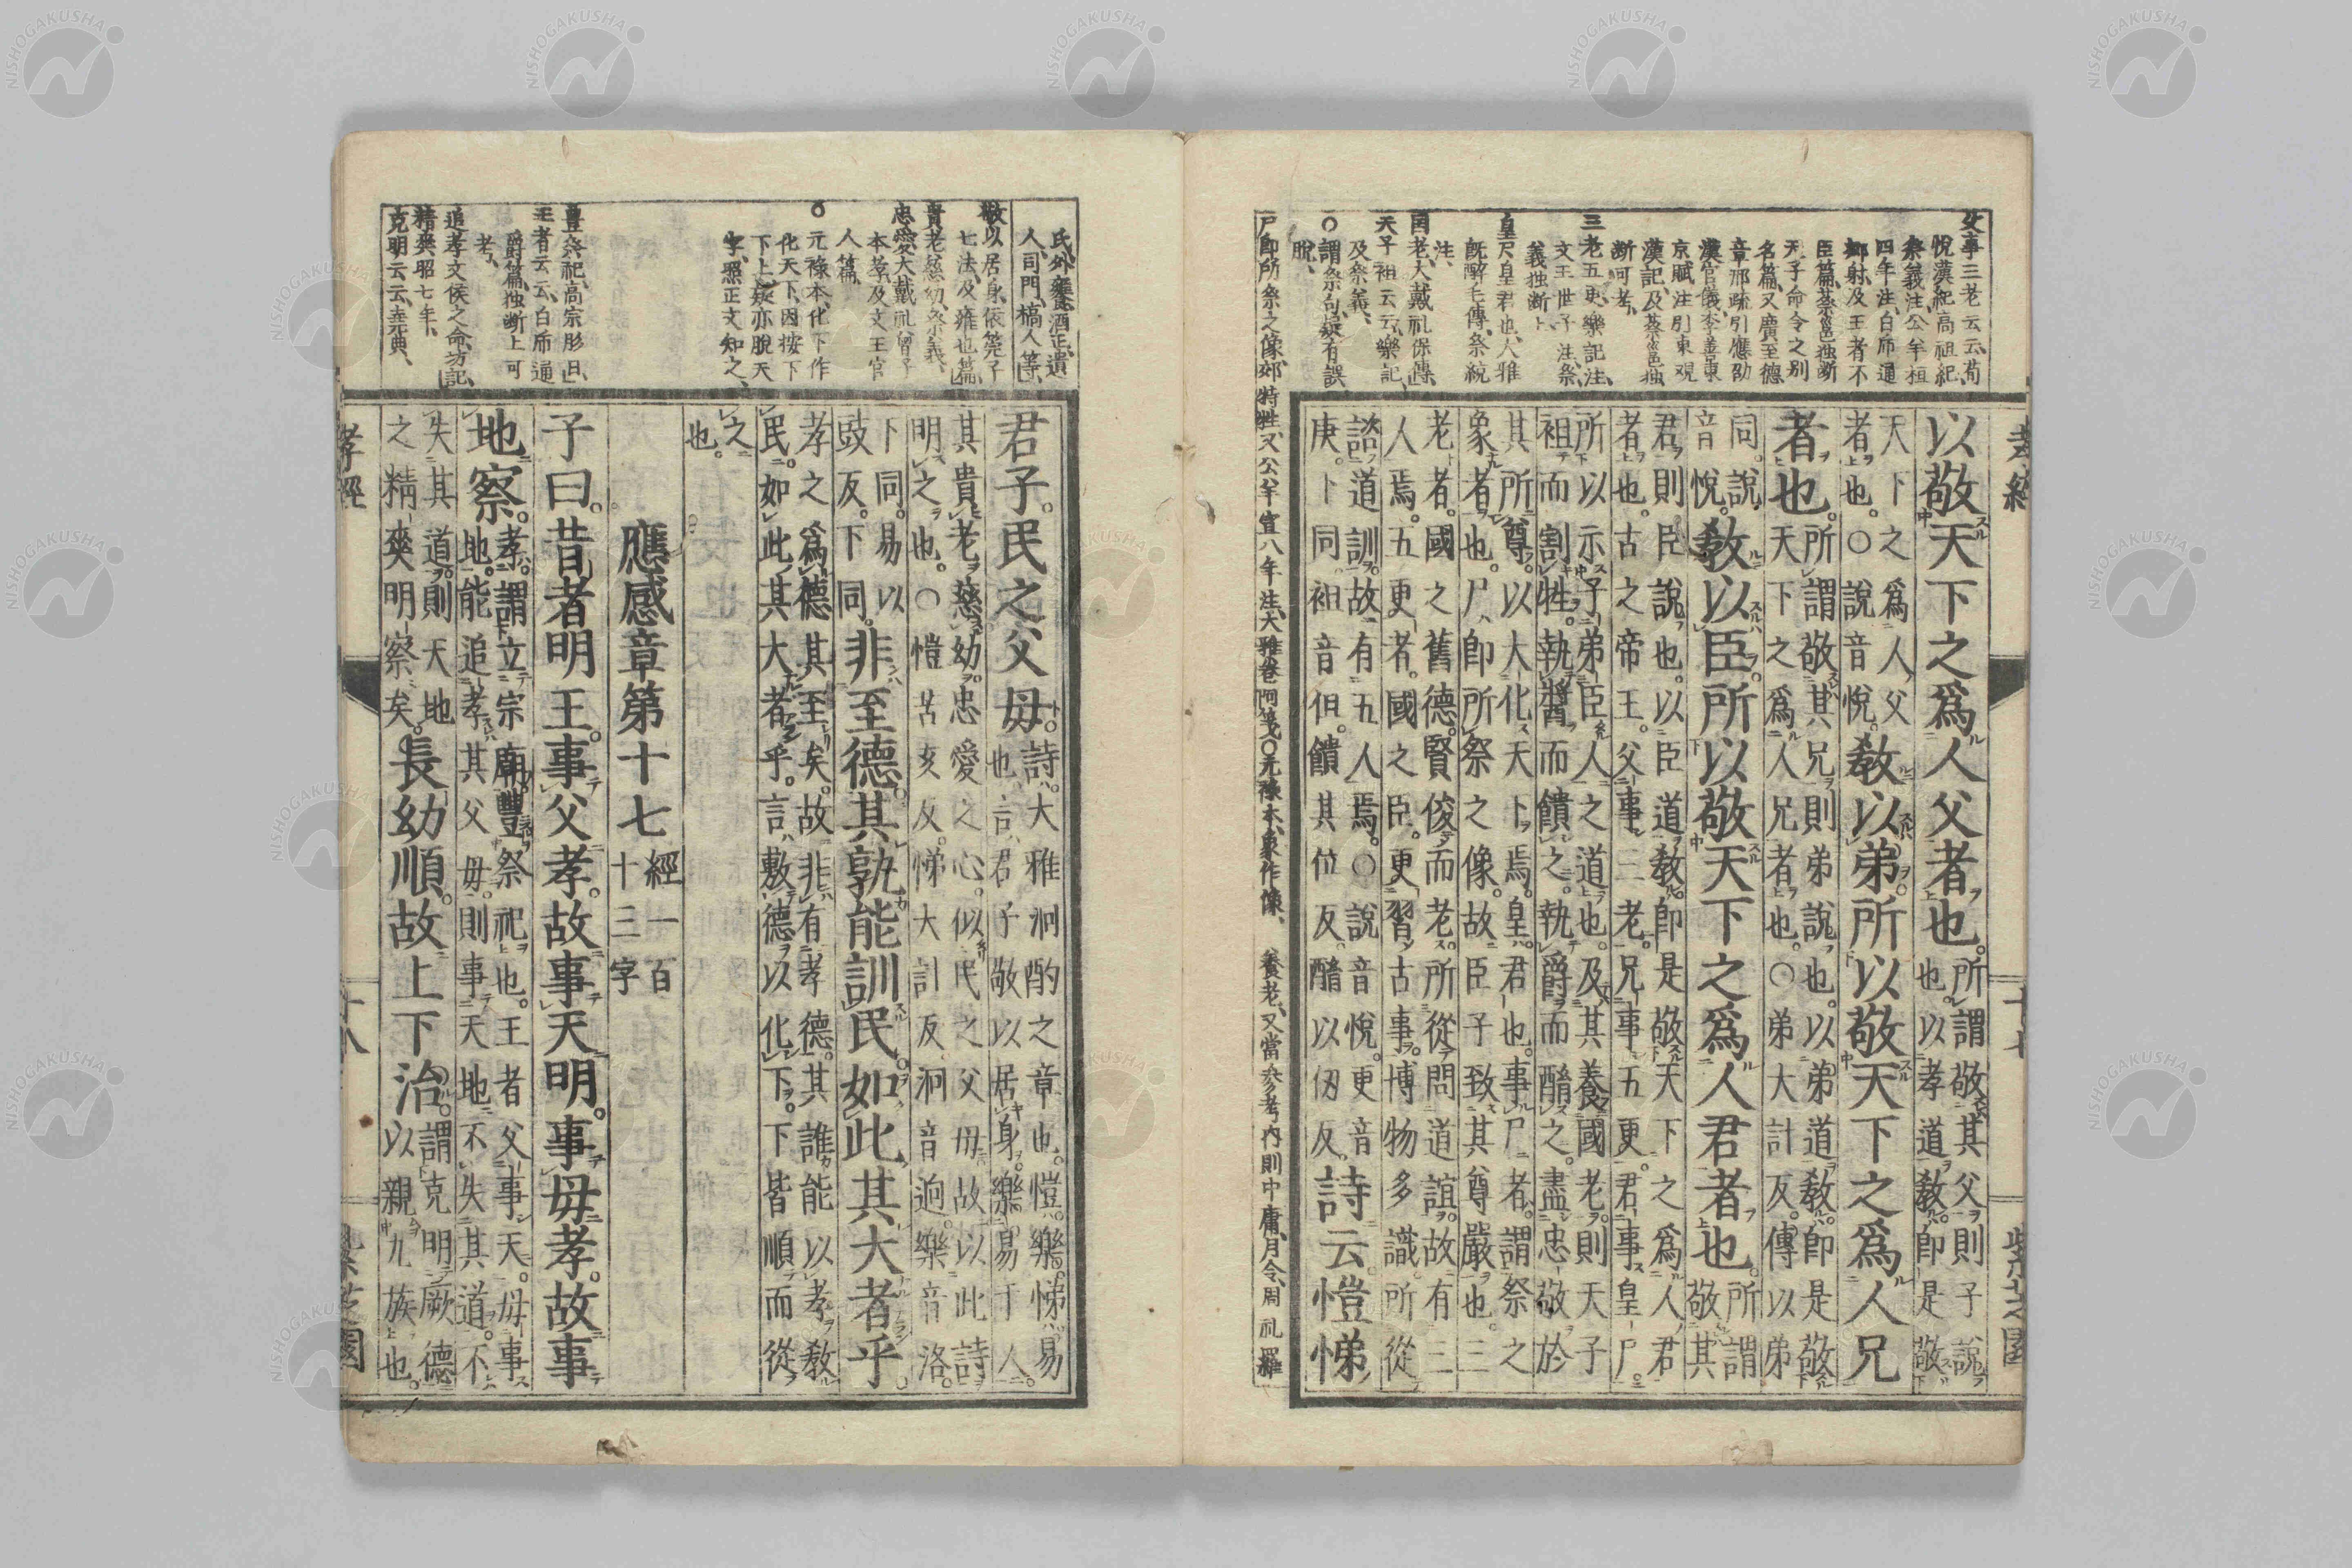 孝經
十七
紫芝園
父事三老云云、荀
悅漢紀高祖紀、
祭義注、公羊桓
四年注、白帋通
鄉射、及王者不
臣篇、蔡邕独断
天子命令之别
名篇、又廣至德
章邢疏引應劭
漢官儀、李善東
京賦注引東觀
漢記、及蔡邕独
断可考、
三老五更、樂記注、
文王世子注、祭
義独断上、
皇尸皇君也、大雅
既醉毛傳、祭統
注、
国老、大戴礼保傅、
天子袒云云、樂記、
及祭義、
○謂祭句、疑有誤
脱、
以敬天下之爲人父者也。所謂敬其父則子説
也。以孝道教。即是敬
天下之爲人父
者也。○説音悅。教以弟。所以敬天下之爲人兄
者也。所謂敬其兄則弟說也。以弟道教。即是敬
天下之爲人兄者也。○弟大計反。傳以弟
同。說
音悅。教以臣。所以敬天下之爲人君者也。所謂
敬其
君。則臣說也。以臣道教。即是敬天下之爲人君
者也。古之帝王。父事三老。兄事五更。君事皇尸。
所以示子弟臣人之道也。及其養國老。則天子
袒而割牲。執醬而饋之。執爵而酳之。盡忠敬於
其所尊。以大化天下焉。皇。君也。事尸者。謂祭之
象者也。尸、即所祭之像。故臣子致其尊嚴也。三
老者。國之舊德賢俊而老。所從問道誼。故有三
人焉。五更者。國之臣。更習古事。博物多識。所從
諮道訓。故有五人焉。○説音悅。更音
庚。下同。袒音但。饋其位反。酳以仞反。詩云。愷悌
尸即所祭之像、郊特牲、又公羊宣八年注、大雅卷阿箋、○元祿本、象作像、 養老、又當参考内則中庸月令、周礼羅
氏、外饔、酒正、遺
人、司門、槁人等、
敬以居身、依筦子
七法、及雍也篇、
貴老慈幼、祭義、
忠愛、大戴礼曾子
本孝、及文王官
人篇、
○元祿本、化下作
化天下、因按下
下上、疑亦脫天
字、照正文知之、
豊祭祀、高宗肜日、
王者云云、白帋通
爵篇、独断上可
考、
追孝、文侯之命、坊記、
精爽、昭七年、
克明云云、堯典、
君子。民之父母。詩。大雅泂酌之章也。愷。樂。悌。易
也。言君子敬以居身。樂易于人。
其貴老慈幼。忠愛之心。似民之父母。故以此詩
明之也。○愷苦亥反。悌大計反。泂音逈。樂音洛。
下同。易以
豉反。下同。非至德。其孰能訓民。如此其大者乎。
孝之爲德其至矣。故非有孝德。其誰能以孝教
民。如此其大者乎。言敷德以化下。下皆順而從
之
也。
應感章第十七經一百
十三字
子曰。昔者明王。事父孝。故事天明。事母孝。故事
地察。孝。謂立宗廟豐祭祀也。王者父事天。母事
地。能追孝其父母。則事天地不失其道。不
失其道。則天地
之精爽明察矣。長幼順。故上下治。謂克明厥德
以親九族也。
孝經
十八
紫芝園